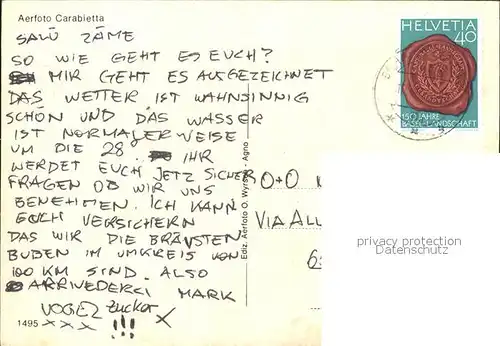 Aerfoto Carabietta
SALÜ ZÄME
SO WIE GEHT ES EUCH?
MIR GEHT ES AUSGEZEICHNET
DAS WETTER IST WAHNSINNIG
SCHÖN UND DAS WASSER
IST NORMALERWEISE
UM DIE 28° IHR
WERDET EUCH JETZ SICHER
FRAGEN OB WIR UNS
BENEHMEN. ICH KANN
EUCH VERSICHERN
DAS WIR DIE BRÄVSTEN
BUBEN IM UMKREIS VON
100 KM SIND. ALSO
ARRIVEDERCI MARK
VOGEL Zucker
x x x !!! x
1495
Ediz. Aerfoto O. Wyrsch - Agno
HELVETIA
40
150 JAHRE
BASEL-LANDSCHAFT
O+O
VIA ALL
6
privacy protection
Datenschutz